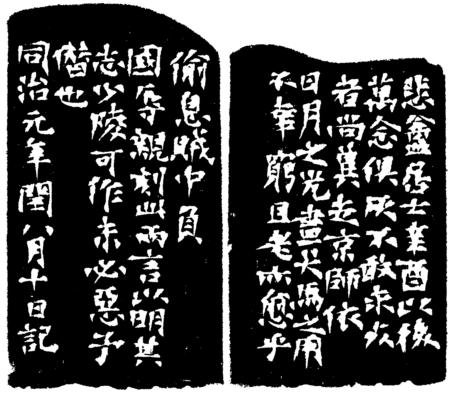 悲盦居士辛酉以後
萬念俱灰不敢求死
者尚冀走京師依
日月之光盡犬馬之用
不幸窮且老亦愈乎
偷息賊中負
國辱親刻此兩言以明其
志少陵可作未必惡予
僭也
同治元年閏八月十日記